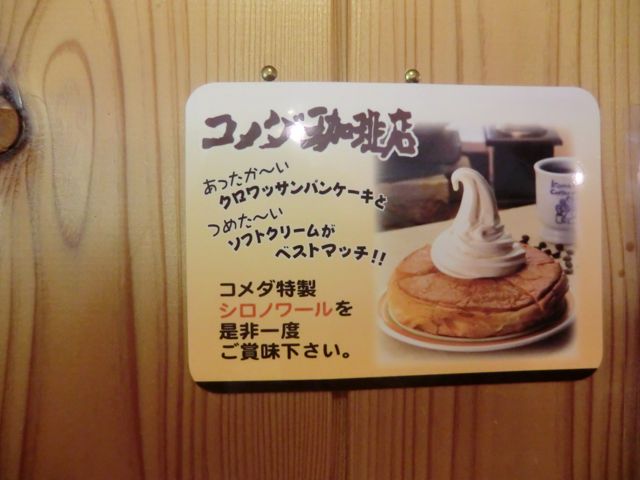 コメダ珈琲店
あったか〜い
クロワッサンパンケーキと
つめた〜い
ソフトクリームが
ベストマッチ!!
コメダ特製
シロノワールを
是非一度
ご賞味下さい。